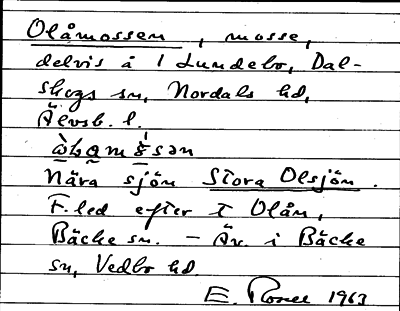 Olåmossen, mosse,
delvis å 1 Lundebo, Dal-
skogs sn, Nordals hd,
Älvsb. l.
Nära sjön Stora Olsjön.
F. led efter t Olån,
Bäcke sn. – Äv. i Bäcke
sn, Vedbo hd.
E. 1963